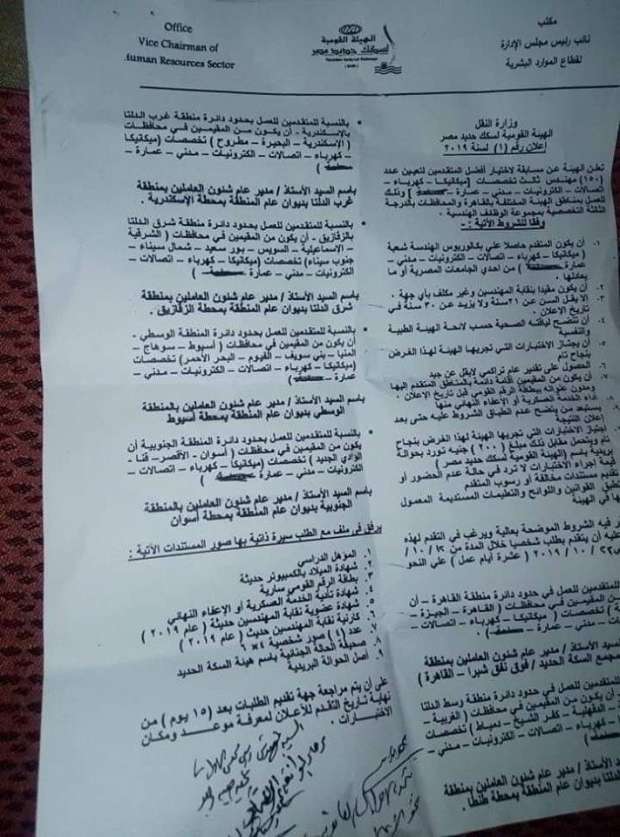 Office
Vice Chairman of
Human Resources Sector
الهيئة القومية
لسكك حديد مصر
مكتب
نائب رئيس مجلس الإدارة
لقطاع الموارد البشرية
وزارة النقل
الهيئة القومية لسكك حديد مصر
إعلان رقم (١) لسنة ٢٠١٩
تعلن الهيئة عن مسابقة لاختيار أفضل المتقدمين لتعيين عدد
(١٥٠) مهندس ثالث تخصصات (ميكانيكا – كهرباء –
اتصالات – إلكترونيات – مدني – عمارة – وذلك
للعمل بمناطق الهيئة المختلفة بالقاهرة والمحافظات بالدرجة
الثالثة التخصصية بمجموعة الوظائف الهندسية .
وفقا للشروط الآتية :-
١. أن يكون المتقدم حاصلا علي بكالوريوس الهندسة شعبة
(ميكانيكا – كهرباء – اتصالات – إلكترونيات – مدني –
عمارة – ) من احدي الجامعات المصرية أو ما
يعادلها .
٢. أن يكون مقيدا بنقابة المهندسين وغير مكلف بأي جهة .
٣. ألا يقل السن عن ٢١ سنة ولا يزيد عن ٣٠ سنة في
تاريخ الإعلان .
٤. أن تتضح لياقته الصحية حسب لائحة الهيئة الطبية
والنفسية
٥. أن يجتاز الاختبارات التي تجريها الهيئة لهذا الغرض
بنجاح تام
٦. الحصول على تقدير عام تراكمي لا يقل عن جيد
٧. أن يكون من المقيمين إقامة دائمة بالمناطق المتقدم إليها
ومدون عنوانه ببطاقة الرقم القومي قبل تاريخ الإعلان .
أداء الخدمة العسكرية أو الإعفاء النهائي منها
يستبعد من يتضح عدم انطباق الشروط عليه حتى بعد
إعلان النتيجة
اجتياز الاختبارات التي تجريها الهيئة لهذا الغرض بنجاح
تام ويتحمل مقابل ذلك مبلغ (٢٠٠) جنيه تورد بحوالة
بريدية باسم (الهيئة القومية لسكك حديد مصر)
قيمة إجراء الاختبارات لا ترد في حالة عدم الحضور أو
تقديم مستندات مخالفة أو رسوب المتقدم
تطبق القوانين واللوائح والتعليمات المستديمة المعمول
بها في الهيئة
فر فيه الشروط الموضحة بعالية ويرغب في التقدم لهذه
عليه أن يتقدم بطلب شخصيا خلال المدة من ١٣ / ١٠ /
٢٢ / ١٠ / ٢٠١٩ ( عشرة أيام عمل ) علي النحو
للمتقدمين للعمل في حدود دائرة منطقة القاهرة – أن
من المقيمين في محافظات ( القاهرة – الجيزة –
) تخصصات ( ميكانيكا – كهرباء – اتصالات –
– مدني – عمارة – ) .
السيد الأستاذ / مدير عام شئون العاملين بمنطقة
بمجمع السكك الحديد / فوق نفق شبرا – القاهرة )
للمتقدمين للعمل في حدود دائرة منطقة وسط الدلتا
أن يكون من المقيمين في محافظات ( الغربية –
– الدقهلية – كفر الشيخ – دمياط ) تخصصات
– كهرباء – اتصالات – إلكترونيات – مدني –
السيد الأستاذ / مدير عام شئون العاملين بمنطقة
الدلتا بديوان عام المنطقة بمحطة طنطا .
• بالنسبة للمتقدمين للعمل بحدود دائرة منطقة غرب الدلتا
بالإسكندرية - أن يكون من المقيمين في محافظات
( الإسكندرية – البحيرة – مطروح ) تخصصات (ميكانيكا
– كهرباء – اتصالات – إلكترونيات – مدني – عمارة –
باسم السيد الأستاذ / مدير عام شئون العاملين بمنطقة
غرب الدلتا بديوان عام المنطقة بمحطة الإسكندرية .
• بالنسبة للمتقدمين للعمل بحدود دائرة منطقة شرق الدلتا
بالزقازيق - أن يكون من المقيمين في محافظات ( الشرقية
– الاسماعيلية – السويس – بور سعيد – شمال سيناء –
جنوب سيناء) تخصصات (ميكانيكا – كهرباء – اتصالات –
إلكترونيات – مدني – عمارة – )
باسم السيد الأستاذ / مدير عام شئون العاملين بمنطقة
شرق الدلتا بديوان عام المنطقة بمحطة الزقازيق .
• بالنسبة للمتقدمين للعمل بحدود دائرة المنطقة الوسطي -
أن يكون من المقيمين في محافظات ( أسيوط – سوهاج –
المنيا – بني سويف – الفيوم – البحر الأحمر) تخصصات
(ميكانيكا – كهرباء – اتصالات – إلكترونيات – مدني –
عمارة – )
باسم السيد الأستاذ / مدير عام شئون العاملين بالمنطقة
الوسطي بديوان عام المنطقة بمحطة أسيوط
• بالنسبة للمتقدمين للعمل بحدود دائرة المنطقة الجنوبية أن
يكون من المقيمين في محافظات ( أسوان – الأقصر – قنا –
الوادي الجديد ) تخصصات (ميكانيكا – كهرباء – اتصالات –
إلكترونيات – مدني – عمارة – )
باسم السيد الأستاذ / مدير عام شئون العاملين بالمنطقة
الجنوبية بديوان عام المنطقة بمحطة أسوان
يرفق في ملف مع الطلب سيرة ذاتية بها صور المستندات الآتية :
١. المؤهل الدراسي
٢. شهادة الميلاد بالكمبيوتر حديثة
٣. بطاقة الرقم القومي سارية
٤. شهادة تأدية الخدمة العسكرية أو الإعفاء النهائي
٥. شهادة عضوية نقابة المهندسين حديثة ( عام ٢٠١٩ )
٦. كارنية نقابة المهندسين حديث ( عام ٢٠١٩ )
٧. عدد (٤) صور شخصية ٤ × ٦
٨. صحيفة الحالة الجنائية باسم هيئة السكة الحديد
٩. أصل الحوالة البريدية
على أن يتم مراجعة جهة تقديم الطلبات بعد (١٥ يوم ) من
نهاية تاريخ التقدم للإعلان لمعرفة موعد ومكان
الاختبارات .